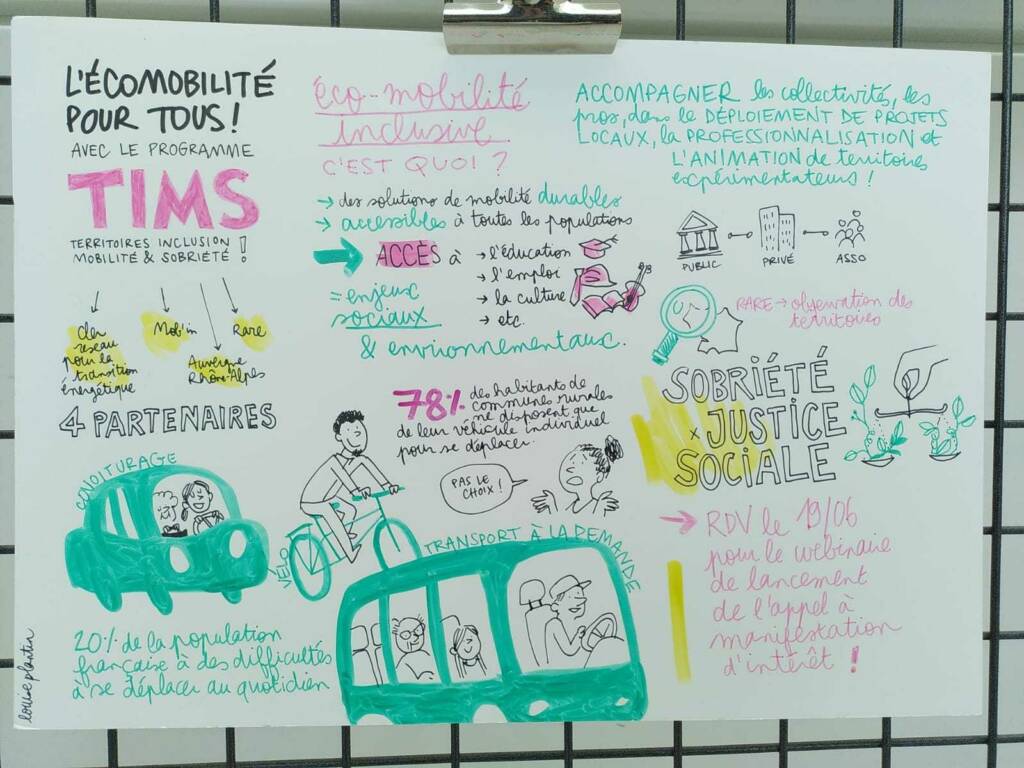 L'ÉCOMOBILITÉ
POUR TOUS !
AVEC LE PROGRAMME
TIMS
TERRITOIRES INCLUSION
MOBILITÉ & SOBRIÉTÉ !
Cler
réseau
pour la
transition
énergétique
Mob'in
Auvergne
Rhône-Alpes
Rare
4 PARTENAIRES
COVOITURAGE
20% de la population
française à des difficultés
à se déplacer au quotidien
louise plantin
éco-mobilité
inclusive
C'EST QUOI ?
→ des solutions de mobilité durables
→ accessibles à toutes les populations
→ ACCÈS à
→ l'éducation
→ l'emploi
→ la culture
→ etc.
= enjeux
sociaux
& environnementaux.
78% des habitants de
communes rurales
ne disposent que
de leur véhicule individuel
pour se déplacer.
PAS LE
CHOIX !
VÉLO
TRANSPORT À LA DEMANDE
ACCOMPAGNER les collectivités, les
pros, dans le DÉPLOIEMENT DE PROJETS
LOCAUX, la PROFESSIONNALISATION et
L'ANIMATION de territoires
expérimentateurs !
PUBLIC
PRIVÉ
ASSO
RARE → observation des
territoires
SOBRIÉTÉ
x JUSTICE
SOCIALE
→ RDV le 19/06
pour le webinaire
de lancement
de l'appel à
manifestation
d'intérêt !